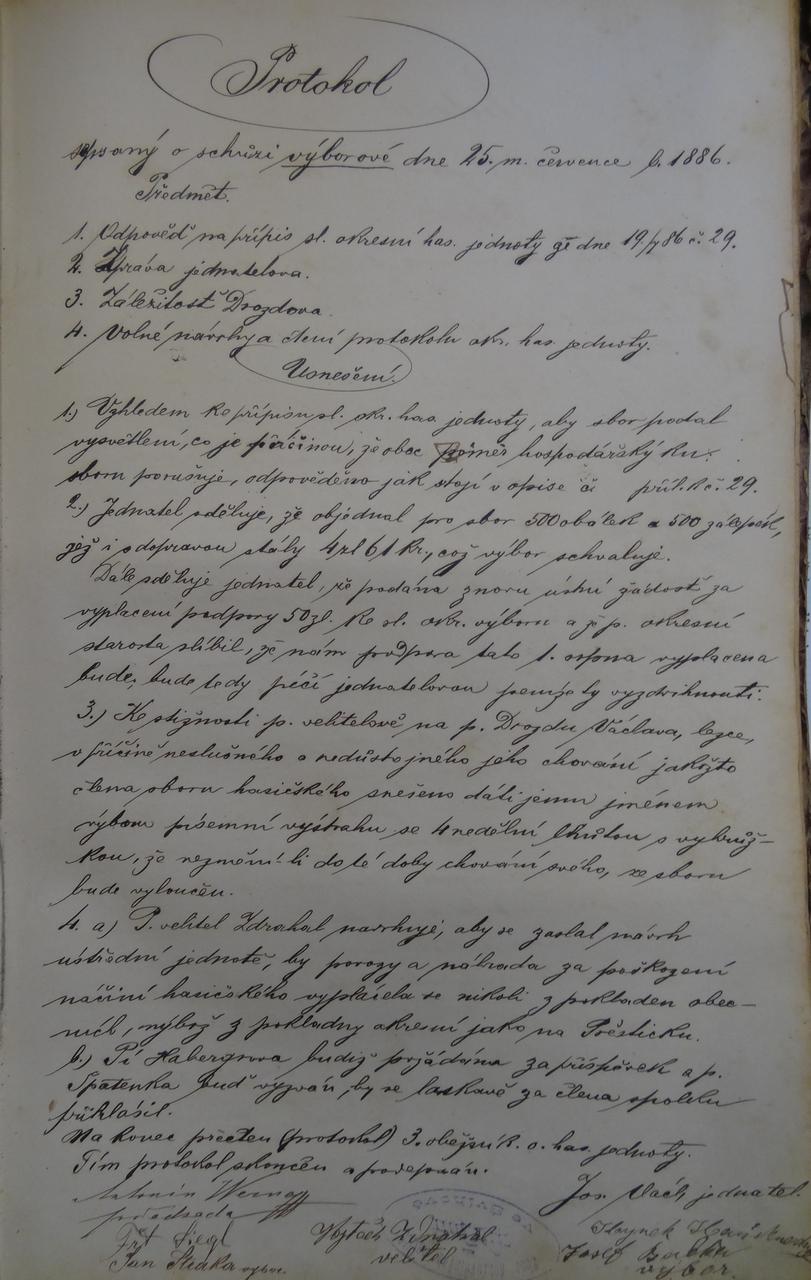 Protokol
sepsaný o schůzi výborové dne 25. m. července l. 1886.
Předmět.
1. Odpověď na přípis sl. okresní has. jednoty že dne 19/7 86 č. 29.
2. Zpráva jednatelova.
3. Záležitosť Drozdova.
4. Volné návrhy a čtení protokolu okr. has. jednoty.
Usnešení.
1.) Vzhledem ke přípisu sl. okr. has. jednoty, aby sbor podal
vysvětlení, co je příčinou, že obec poměr hospodářský ku
sboru porušuje, odpověděno jak stojí v opise č. 29.
2.) Jednatel sděluje, že objednal pro sbor 500 obálek a 500 zálepek,
jež i s dopravou stály 4 zl 61 kr., což výbor schvaluje.
Dále sděluje jednatel, že podána znovu ústní žádosť za
vyplacení podpory 50 zl. ke sl. okr. výboru a že p. okresní
starosta slíbil, že nám podpora tato 1. srpna vyplacena
bude; bude tedy péčí jednatelovou peníze ty vyzdvihnouti.
3.) Ke stížnosti p. velitelově na p. Drozdu Václava, lezce,
v příčině neslušného a nedůstojného jeho chování jakožto
člena sboru hasičského snešeno dáti jemu jménem
výboru písemní výstrahu se 4 nedělní lhůtou s vyhrůž-
kou, že nezmění-li do té doby chování svého, ze sboru
bude vyloučen.
4. a) P. velitel Zdrahal navrhuje, aby se zaslal návrh
ústřední jednotě, by povozy a náhrada za poškození
náčiní hasičského vyplácela se nikoli z pokladen obec-
ních, nýbrž z pokladny okresní jako na Přešticku.
b.) Pí Habergrova budiž požádána za příspěvek a p.
Špatenka buď vyzván, by se laskavě za člena spolku
přihlásil.
Na konec přečten (protokol) 3. oběžník o. has. jednoty.
Tím protokol skončen a podepsán.
Antonín Werner
předseda
Jos. Vlach jednatel.
Frt Siegl
Vojtěch Zdrahal
Hynek
Jan Straka výbor.
velitel
Josef Babka
výbor